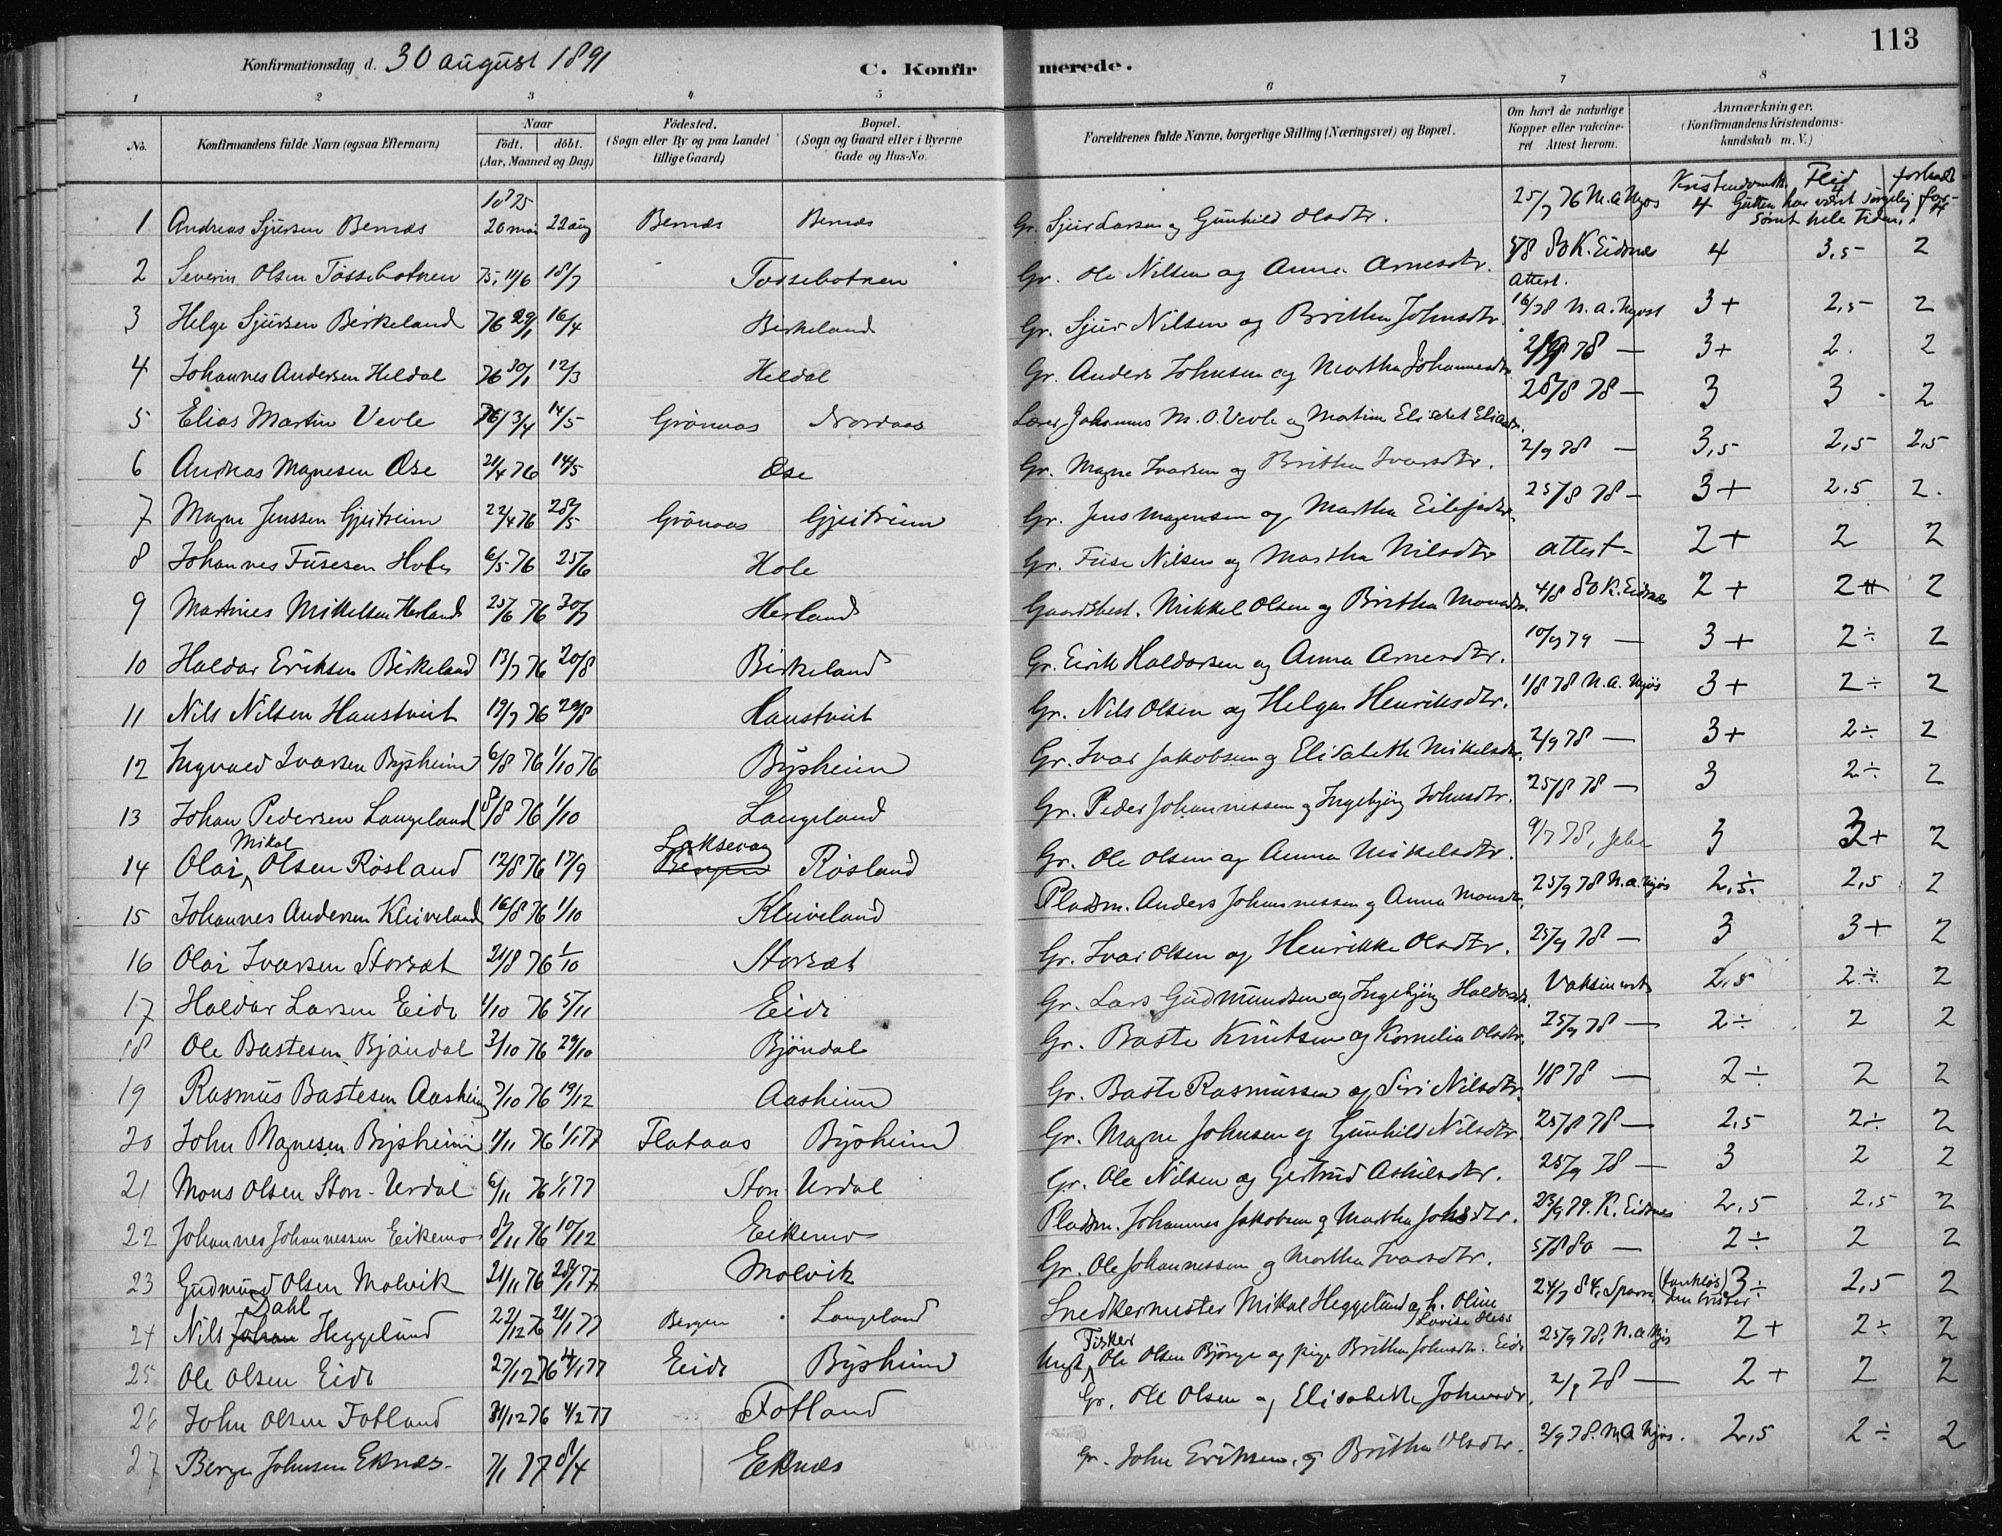 113
Konfirmationsdag d. 30 august 1891
C. Konfirmerede.
1 2 3 4 5 6 7 8
No.
Konfirmandens fulde Navn (ogsaa Efternavn)
Naar
født. døbt.
(Aar, Maaned og Dag)
Fødested.
(Sogn eller By og paa Landet
tillige Gaard)
Bopæl.
(Sogn og Gaard eller i Byerne
Gade og Hus-No.
Forældrenes fulde Navne, borgerlige Stilling (Næringsvei) og Bopæl.
Om havt de naturlige
Kopper eller vakcine-
ret Attest herom.
Anmærkninger.
(Konfirmandens Kristendoms-
kundskab m. V.)
Flid
1 Andreas Sjursen Bernæs 20 mai 22 aug Bernæs Bernæs Gr. Sjur Larsen og Gunhild Olsdtr. 25/7 76 N. a Njøs 4 Gutten har været sørgelig for-
sømt hele Tiden.
2 Severin Olsen Tössebotnen 75, 11/6 18/7 Tossebotnen Gr. Ole Nilsen og Anna Arnesdtr. 5/8 80 K. Eidsnes 4 3,5 2
Attest.
3 Helge Sjursen Birkeland 76 29/1 16/4 Birkeland Gr. Sjur Nilsen og Britha Johnsdtr. 3+ 2,5 2
4 Johannes Andersen Heldal 76 30/1 12/3 Heldal Gr. Anders Johnsen og Martha Johannesdtr 78 — 3+ 2. 2
5 Elias Martin Vevle 76 3/4 14/5 Grönaas Nordaas Lærer Johannes M. O. Vevle og Martine Elisabet Eliasdtr. 28/8 78 — 3 3 2
6 Andreas Magnesen Øse 21/4 76 14/5 Øse Gr. Magne Ivarsen og Britha Ivarsdtr. 2/9 78 — 3,5 2,5 2,5
7 Magne Jenssen Gjeitreim 22/4 76 28/5 Grönaas Gjeitreim Gr. Jens Magnesen og Martha Eilefsdtr. 25/8 78 — 3+ 2,5 2.
8 Johannes Fusesen Hole 6/5 76 25/6 Hole Gr. Fuse Nilsen og Martha Nilsdtr attest- 2+ 2 2
9 Martines Mikkelsen Herland 25/6 76 30/7 Herland Gaardbest. Mikkel Olsen og Britha Monsdtr. 4/8 80 K. Eidsnes 2+ 2+ 2
10 Haldor Eriksen Birkeland 13/7 76 20/8 Birkeland Gr. Eirik Haldorsen og Anna Arnesdtr. 10/9 79 — 3+ 2÷ 2
11 Nils Nilsen Haustveit 19/7 76 20/8 Haustveit Gr. Nils Olsen og Helga Henriksdtr. 1/8 78 N. a. Njøs 3+ 2÷ 2
12 Ingvald Ivarsen Bysheim 6/8 76 1/10 76 Bysheim Gr. Ivar Jakobsen og Elisabeth Mikelsdtr. 2/9 78 — 3+ 2÷ 2
13 Johan Pedersen Langeland 8/8 76 1/10 Langeland Gr. Peder Johannessen og Ingebjørg Johnsdtr. 25/8 78 — 3 2÷ 2
Mikal
14 Olai Olsen Røsland 12/8 76 17/9 Laksevaag Bergen Røsland Gr. Ole Olsen og Anna Mikelsdtr. 9/7 78, 3 2+ 2
15 Johannes Andersen Kleiveland 16/8 76 1/10 Kleiveland Pladsm. Anders Johannessen og Anna Monsdtr. 25/9 78 N. a. Njøs 2,5÷ 2,5 2
16 Olai Ivarsen Storsæt 21/8 76 1/10 Storsæt Gr. Ivar Olsen og Henrikke Olsdtr. 25/9 78 — 3 3+ 2
17 Haldor Larsen Eide 1/10 76 5/11 Eide Gr. Lars Gudmundsen og Ingebjørg Haldorsdtr. Vaksineret 2,5 2÷ 2
18 Ole Bastesen Bjöndal 3/10 76 29/10 Bjöndal Gr. Baste Knutsen og Kornelia Olsdtr. 25/9 78 — 2÷ 2 2
19 Rasmus Bastesen Aasheim 7/10 76 19/12 Aasheim Gr. Baste Rasmussen og Siri Nilsdtr. 1/8 78 — 2÷ 2 2
20 John Magnesen Bysheim 1/11 76 1/1 77 Flataas Bysheim Gr. Magne Johnsen og Gunhild Nilsdtr. 25/8 78 — 2,5 2÷ 2
21 Mons Olsen Stor-Urdal 6/11 76 1/1 77 Stor-Urdal Gr. Ole Nilsen og Gjertrud Askildsdtr. 25/9 78 — 3 2 2
22 Johannes Johannessen Eikemo 8/11 76 10/12 Eikemo Pladsm. Johannes Jakobsen og Martha Johsdtr. 23/9 79. K. Eidsnes 2,5 2,5 2
23 Gudmund Olsen Molvik 21/11 76 28/1 77 Molvik Gr. Ole Johannessen og Martha Ivarsdtr. 5/8 80 — 2÷ 2 2
Dahl
24 Nils Johan Heggelund 22/12 76 21/1 77 Bergen Langeland Snedkermester Mikal Heggelund og h. Oline
Lovise Hess 24/7 84, (tankløs) 3÷ 2,5 2
Fisker
25 Ole Olsen Eide 27/12 76 77 Eide Bysheim Ungk. Ole Olsen Bjørge og pige Britha Johnsdtr. Eide 25/9 78, N. a Njøs 2+ 2÷ 2
26 John Olsen Fotland 31/12 76 4/2 77 Fotland Gr. Ole Olsen og Elisabeth Johnsdtr. 78 — 2+ 2 2
27 Berge Johnsen Eknes 7/1 77 8/4 Eknæs Gr. John Eriksen og Britha Olsdtr. 2/9 78. N. a Njøs. 2,5 2÷ 2